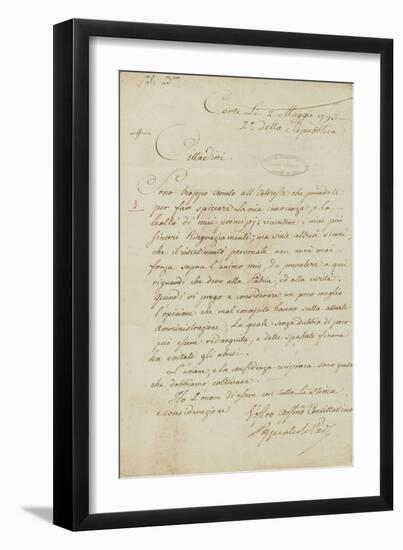 Corte Li 2. Maggio 1793
2.º della Republica
Cittadini
Sono troppo tenuto all'interesse che prendete
per far spiccare la mia innocenza, e la
lealtà di miei principj; ricevetene i miei più
sinceri Ringraziamenti; ma siate altresì sicuri,
che il risentimento personale non avrà mai
forza sopra l'animo mio, da prevalere a quei
riguardi che devo alla Patria, ed alla verità.
Quindi vi prego a considerare un poco meglio
l'opinione che mal concepito hanno sulla attuale
Amministrazione, la quale senza dubbio di poco
può essere redarguita, e delle spallate finora
ha evitate gli abusi.
L'unione, e la confidenza reciproca sono quelle
che dobbiamo coltivare.
Ho l'onore di essere con tutta la stima
e considerazione Vostro Affmo Concittadino
Pasquale de Paoli